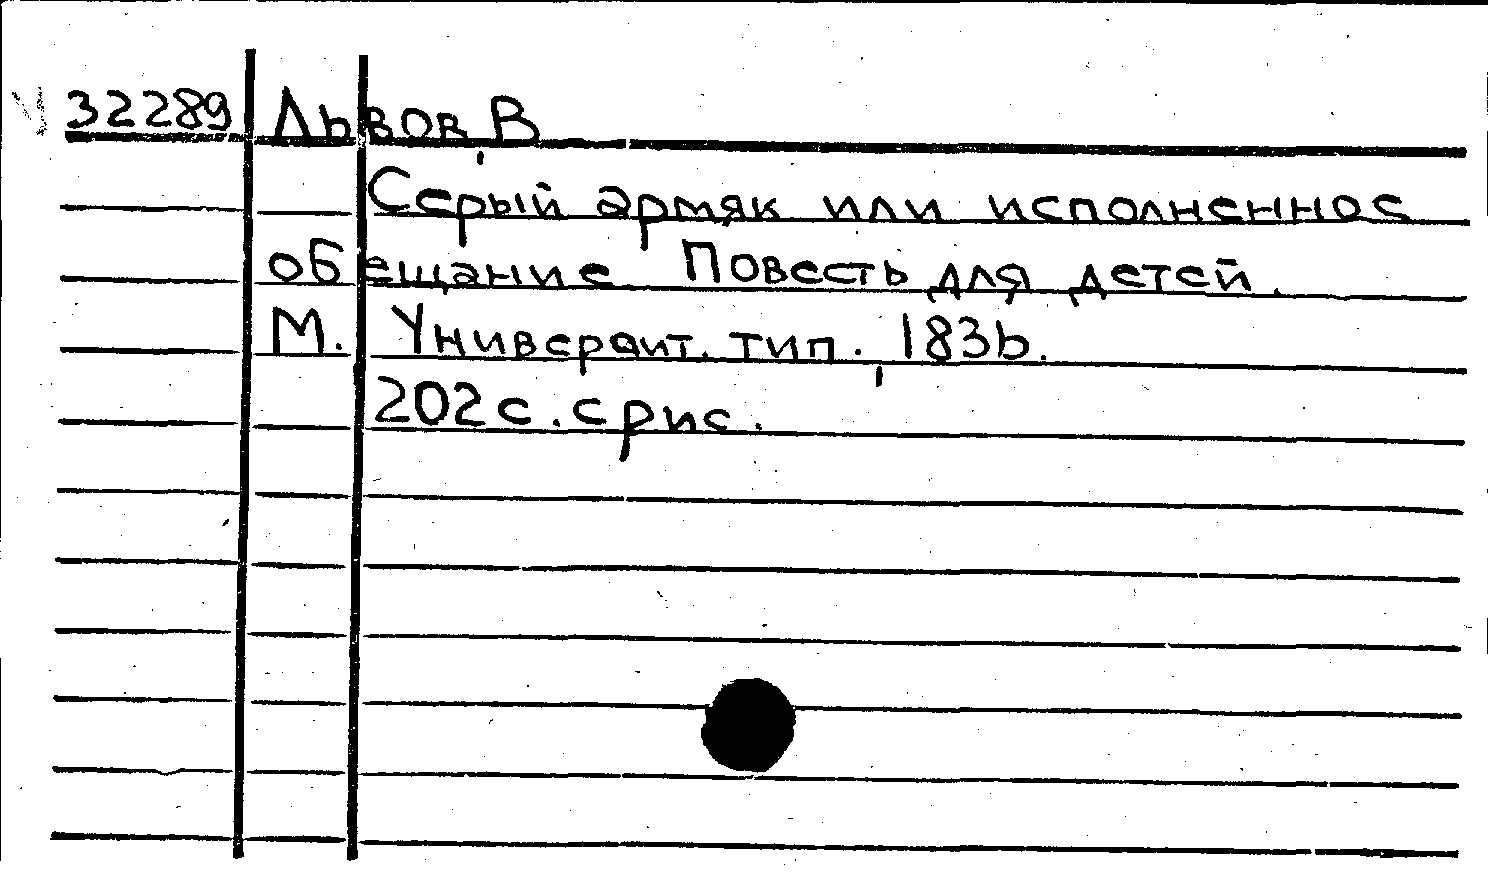 32289 Львов В
Серый армяк или исполненное
обещание Повесть для детей.
М. Университ. тип. 1836.
202 с. с рис.